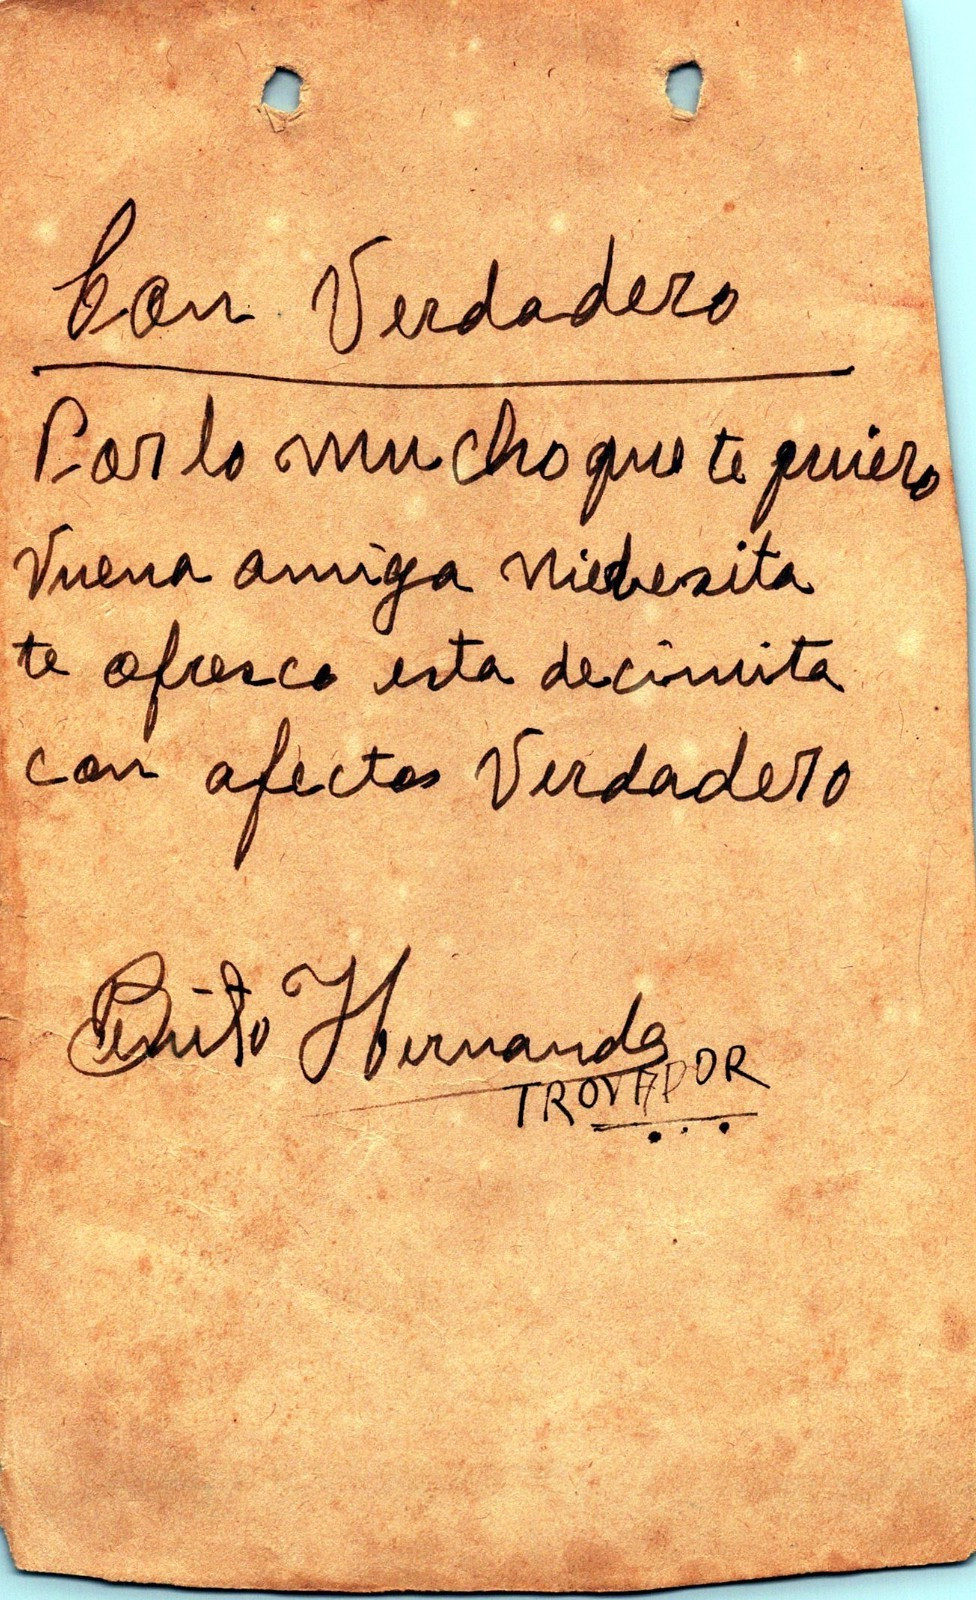 Con Verdadero
Por lo mucho que te quiero
Vuena amiga
te ofresco esta decimita
con afectos Verdadero
Benito Hernande
TROVADOR